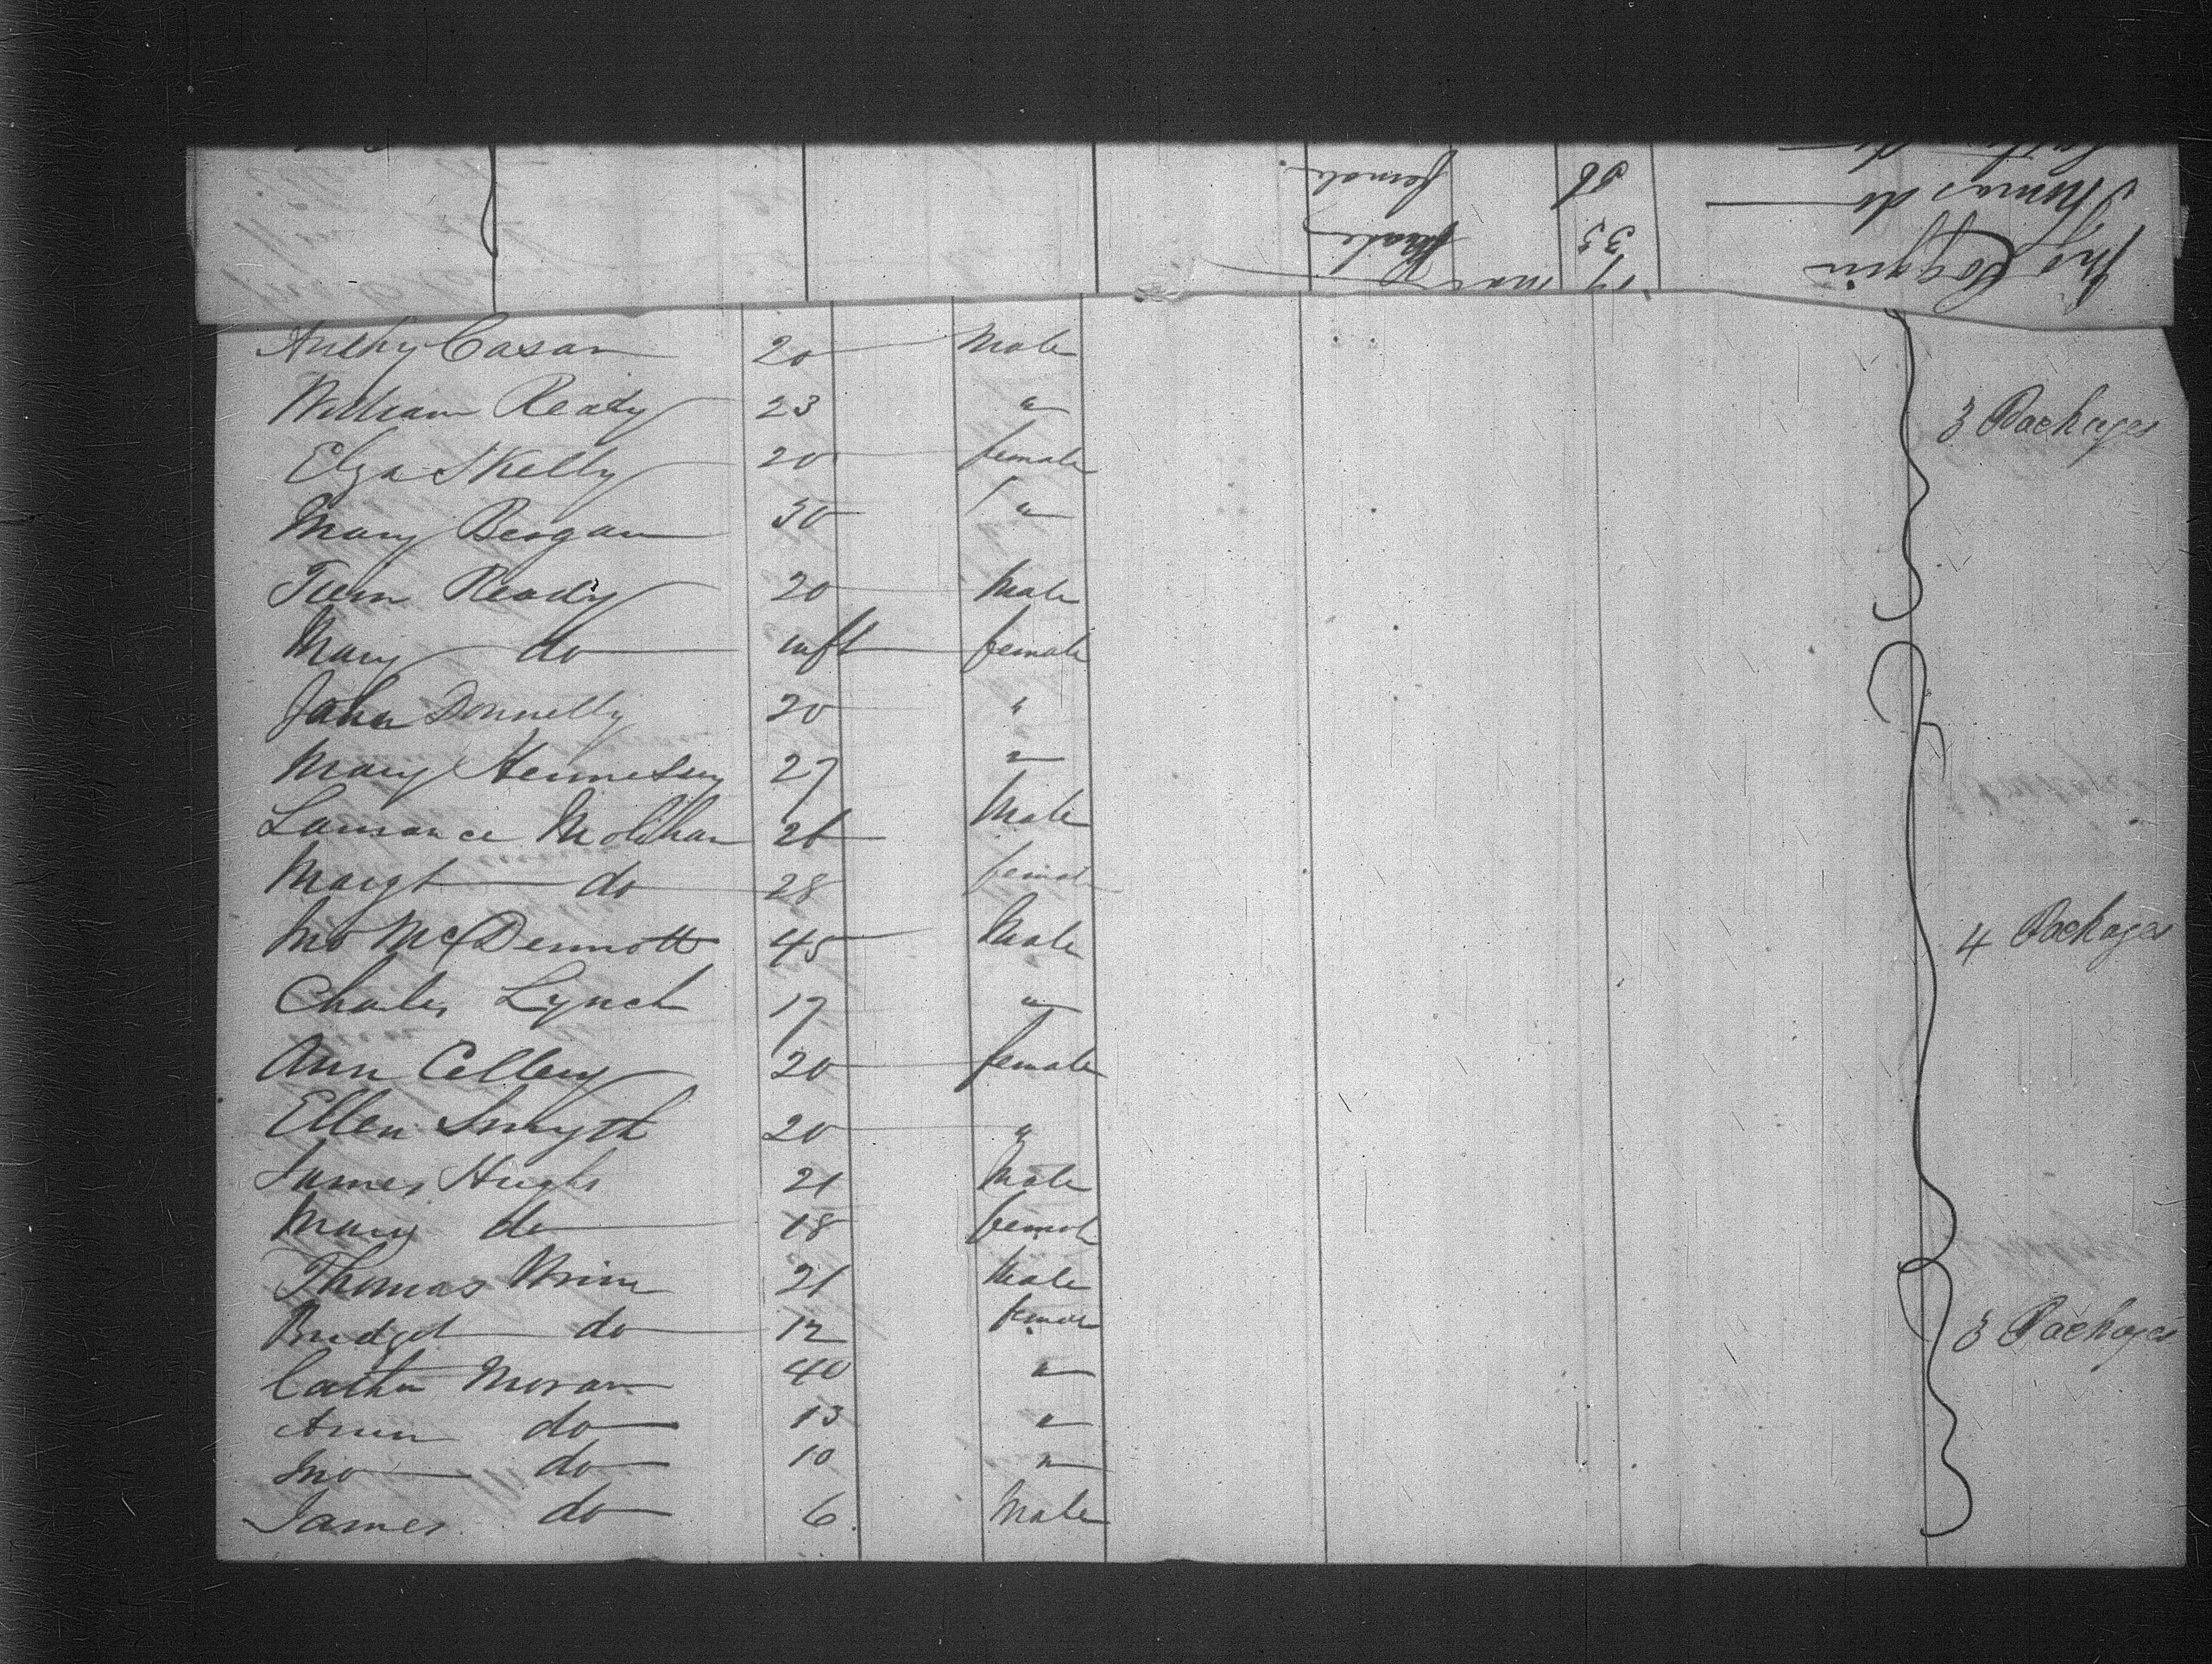 Jno Coggin 35 Male
Thomas do 56 female
Anthy Casan 20 Male
William Ready 23 "
3 Packages
Elza Skelly 20 female
Mary Bergan 30 "
Ready 20 Male
Mary do inft female
John Donnelly 20 "
Mary Hennesey 27 "
Laurance Molihan 26 Male
Margt do 28 female
Jno McDermott 45 Male
4 Packages
Charles Lynch 17 "
Ann Cellery 20 female
Ellen Smyth 20 "
James Hughs 21 Male
Mary do 18 female
Thomas 21 Male
Bridget do 12 female
3 Packages
Cathn Moran 40 "
Ann do 13 "
Jno do 10 "
James do 6 Male